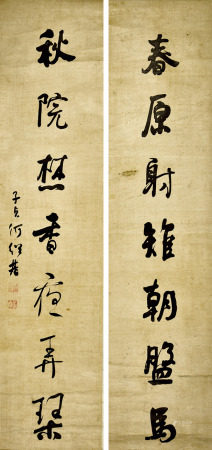 春原射雉朝盤馬
秋院焚香夜弄琴
子貞何紹基